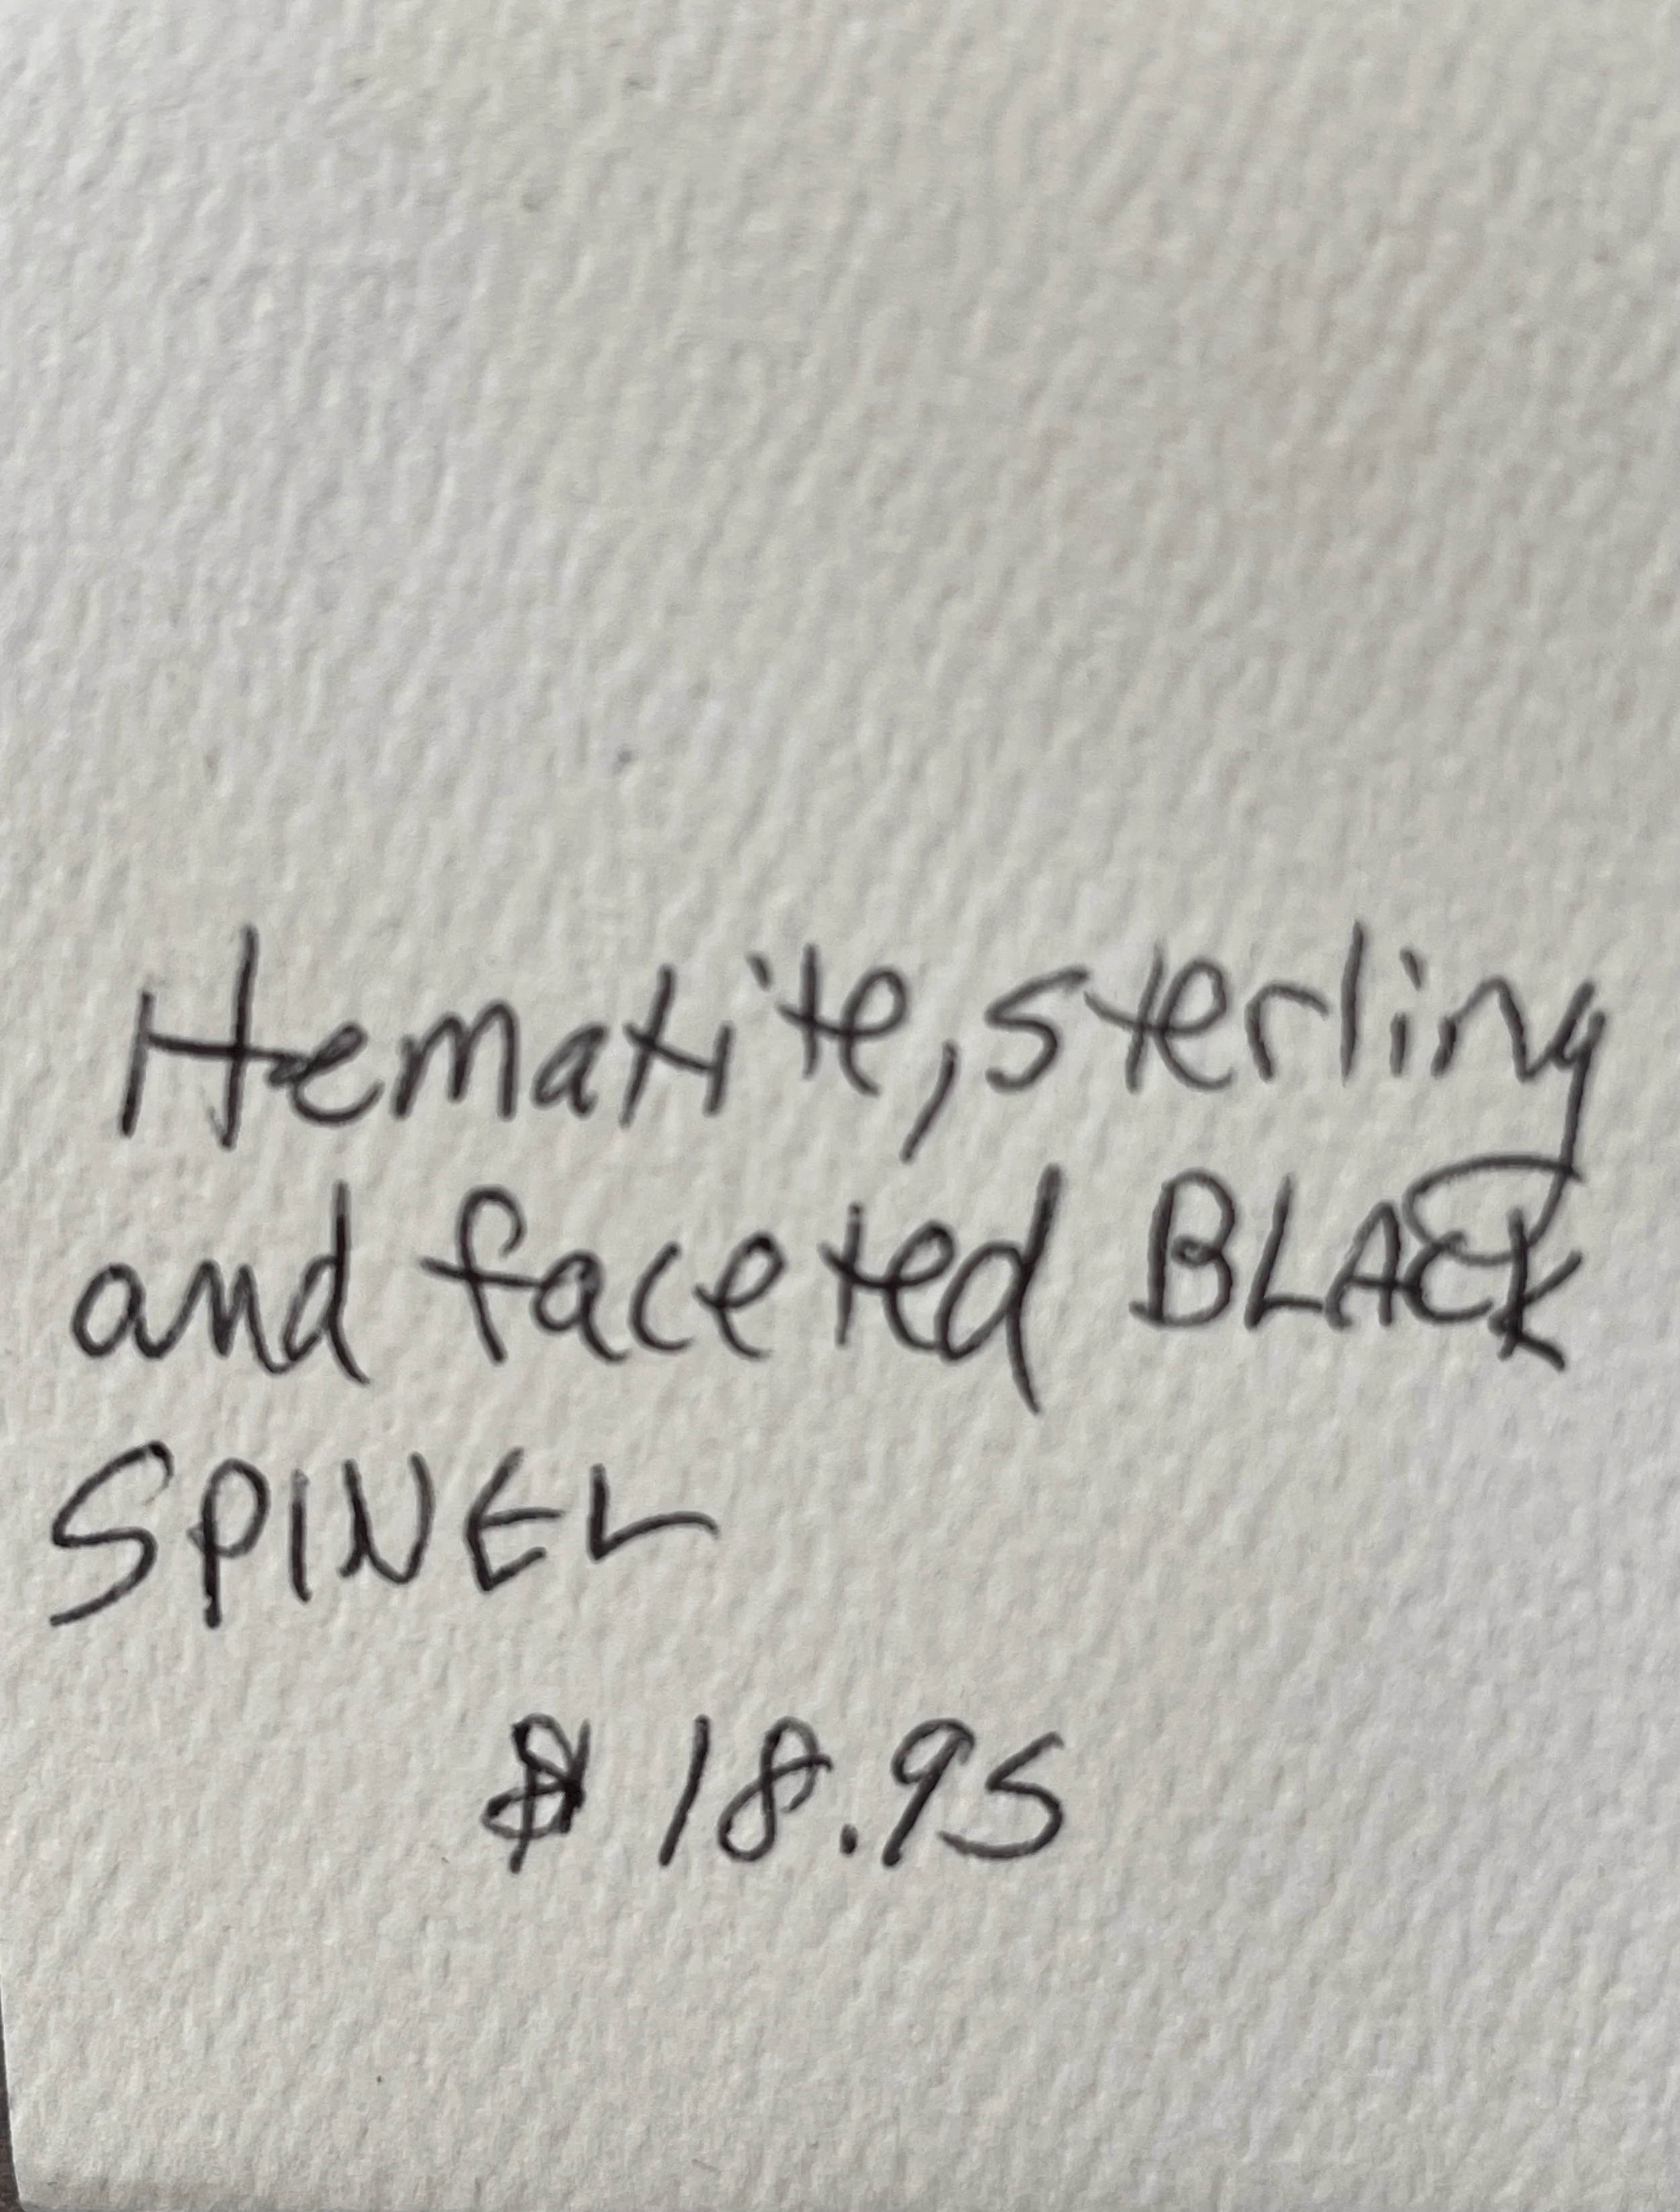 Hematite, sterling
and faceted BLACK
SPINEL
$ 18.95